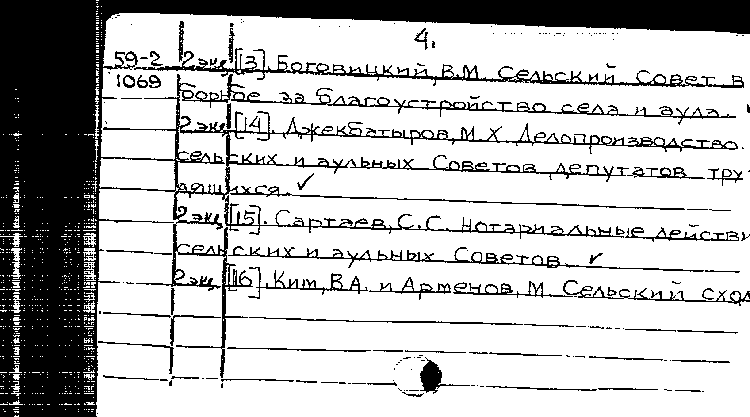 4.
59-2 2 экз. [13]. Боговицкий, В.М. Сельский Совет в
1069 борьбе за благоустройство села и аула.
2 экз. [14]. Джекбатыров, М.Х. Делопроизводство
сельских и аульных Советов депутатов тру-
дящихся. ✓
2 экз. [15]. Сартаев, С.С. Нотариальные действи
сельских и аульных Советов. ✓
2 экз. [16]. Ким, В.А. и Арменов, М. Сельский сход